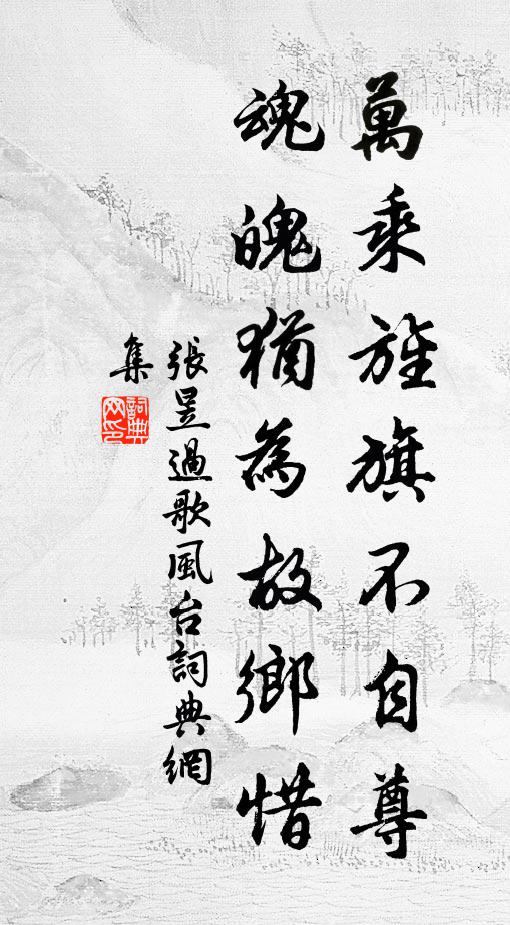 萬乘旌旗不自尊
魂魄猶為故鄉惜
張昱過歌風台詞典網
集
詞典
网印